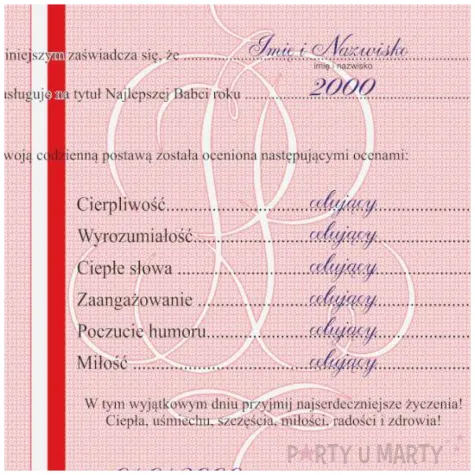 iniejszym zaświadcza się, że ........ Imię i Nazwisko
imię i nazwisko
asługuje na tytuł Najlepszej Babci roku ........ 2000
woją codzienną postawą została oceniona następującymi ocenami:
Cierpliwość........ celujący
Wyrozumiałość........ celujący
Ciepłe słowa ........ celujący
Zaangażowanie ........ celujący
Poczucie humoru........ celujący
Miłość ........ celujący
W tym wyjątkowym dniu przyjmij najserdeczniejsze życzenia!
Ciepła, uśmiechu, szczęścia, miłości, radości i zdrowia!
PARTY U MARTY